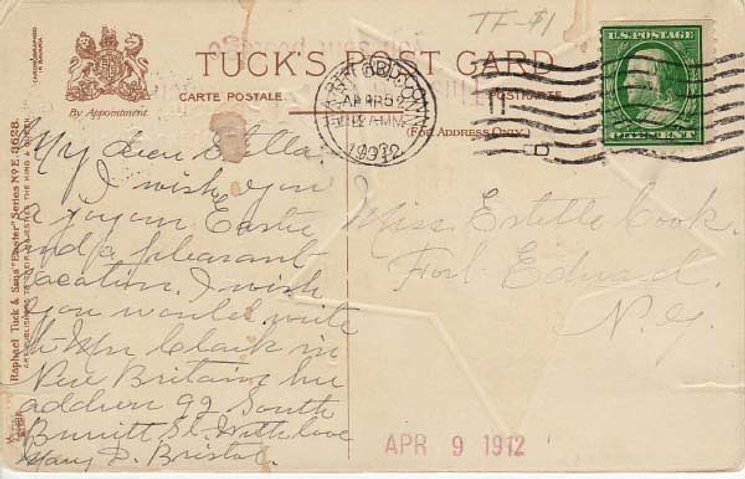 TF-$1
U.S. POSTAGE
TUCK'S POST CARD
CARTE POSTALE.
POSTKARTE
By Appointment.
(FOR ADDRESS ONLY.)
HARTFORD, CONN
1912
My dear Estella
I wish you
a joyous Easter
and a pleasant
vacation. I wish
you would write
to Mrs Clark in
New Britain, her
address 92 South
Burritt St. With love
Mary D. Bristol.
Miss Estelle Cook.
Fort Edward.
N.Y.
APR 9 1912
Raphael Tuck & Sons' "Easter" Series No E. 3628.
ART PUBLISHERS TO THEIR MAJESTIES THE KING & QUEEN